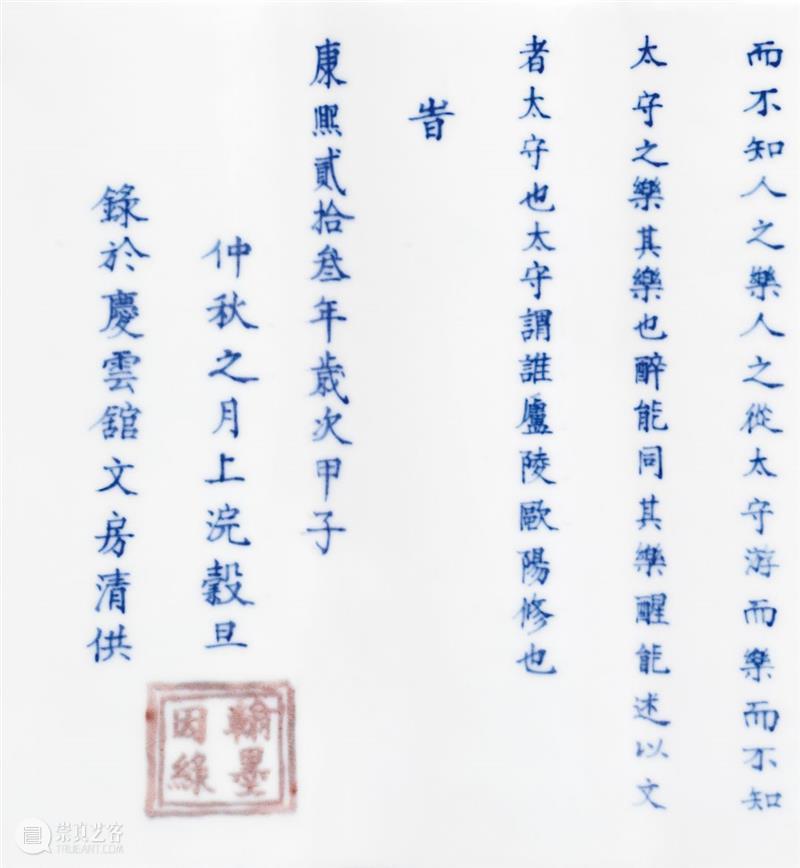 而不知人之樂人之從太守游而樂而不知
太守之樂其樂也醉能同其樂醒能述以文
者太守也太守謂誰廬陵歐陽修也
旹
康熙貳拾叁年歲次甲子
仲秋之月上浣穀旦
錄於慶雲舘文房清供
翰墨
因緣
崇真艺客
TRUEART.COM